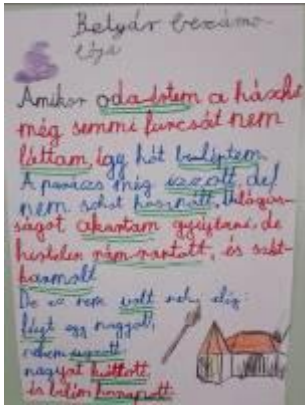 Betyár beszámo-
lója
Amikor oda-értem a házhoz
még semmi furcsát nem
láttam, így hát beléptem.
A parázs még izzott, de
nem sokat használt. Világos-
ságot akartam gyújtani, de
hirtelen rám-rontott, és szét-
karmolt
De ez nem volt neki elég:
fújt egy nagyot,
nekem ugrott
nagyot
és belém